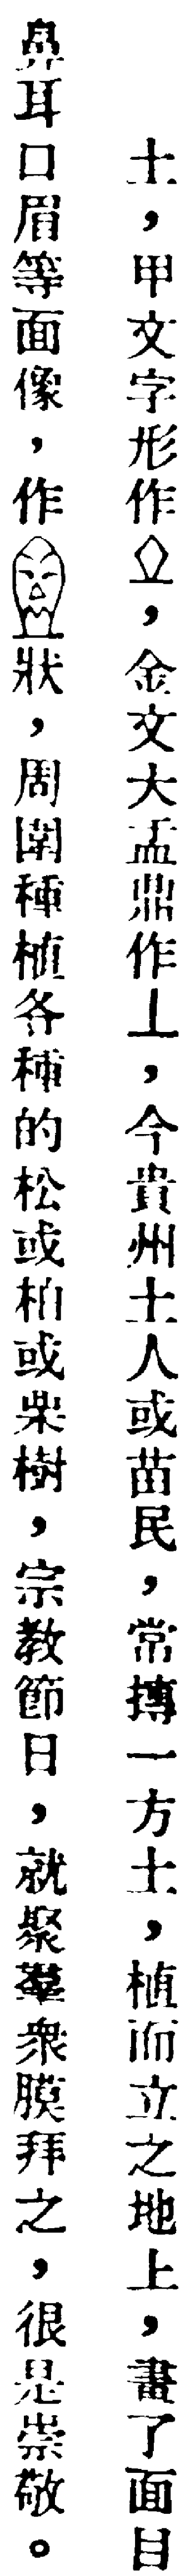 土，甲文字形作，金文大盂鼎作丄，今貴州土人或苗民，常摶一方土，植而立之地上，畫了面目
鼻耳口眉等面像，作狀，周圍種植各種的松或柏或果樹，宗教節日，就聚羣衆膜拜之，很是崇敬。